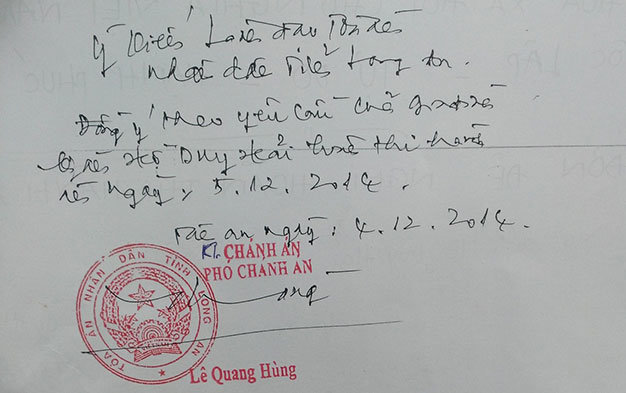 Ý kiến Lãnh đạo Tòa án
nhân dân tỉnh Long An.
Đồng ý theo yêu cầu của gia đình
bị án Hồ Duy Hải hoãn thi hành
án ngày: 5.12.2014.
Tân an ngày: 4.12.2014.
KT. CHÁNH ÁN
PHÓ CHÁNH ÁN
TÒA ÁN NHÂN DÂN TỈNH LONG AN
Lê Quang Hùng